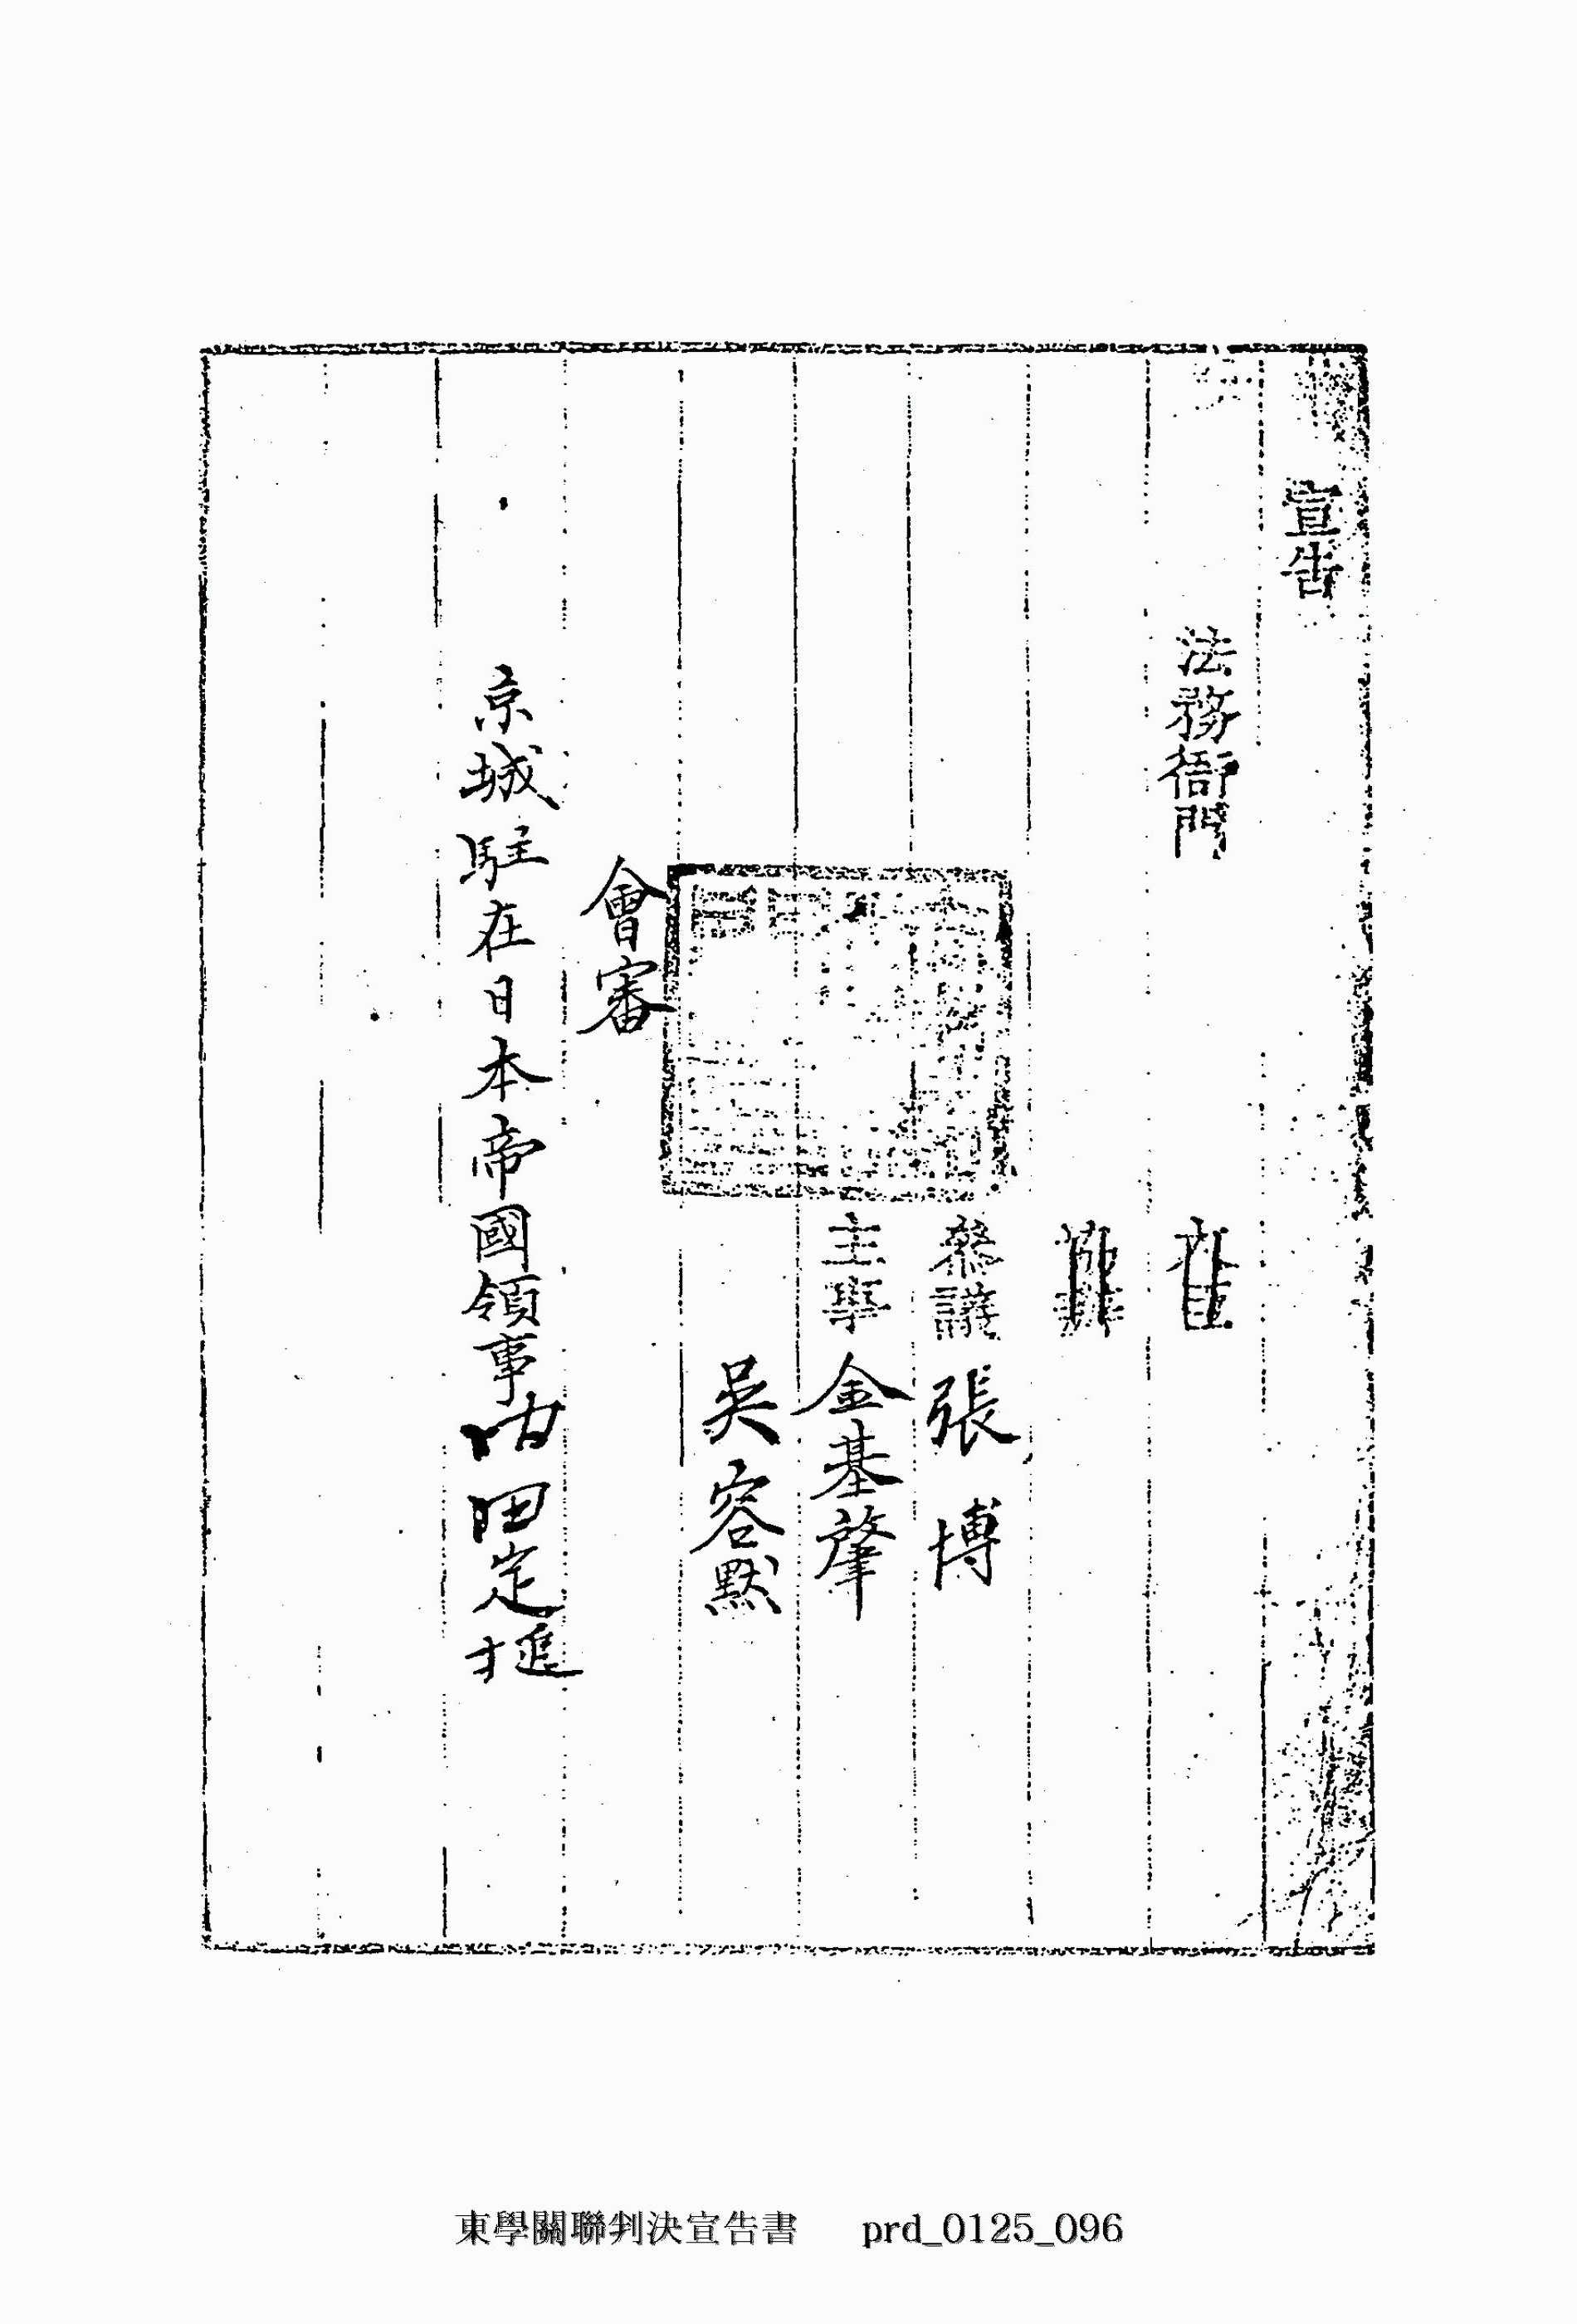 宣告
法務衙門
大臣
協辦
參議 張 博
主事 金基肇
吳容默
會審
京城駐在日本帝國領事內田定槌
東學關聯判決宣告書 prd_0125_096